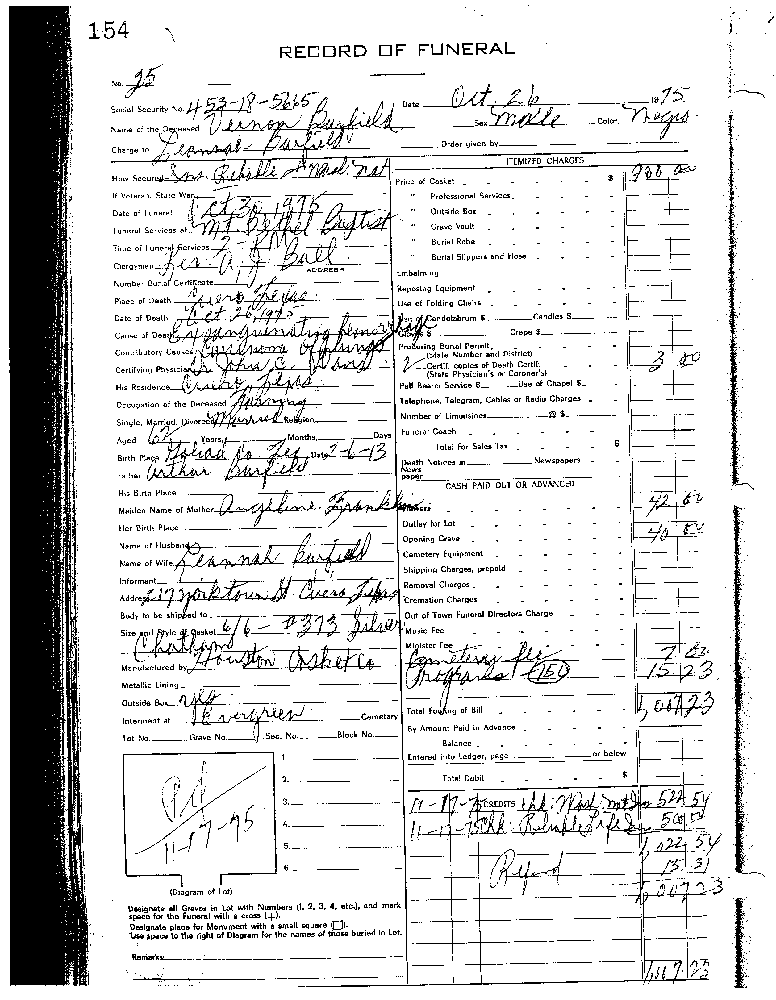 154
RECORD OF FUNERAL
No. 25
Social Security No. 453-18-5665
Date Oct. 26 1975
Name of the Deceased Vernon Barfield
Sex Male Color Negro
Charge to Leannah Barfield
Order given by
How Secured Ins. Reliable + Nat.
If Veteran, State War
Date of Funeral Oct 30, 1975
Funeral Services at Mt. Bethel Baptist
Time of Funeral Services 2
Clergyman Rev. A. J. Ball
ADDRESS
Number Burial Certificate
Place of Death Cuero Texas
Date of Death Oct 26, 1975
Cause of Death Exsanguinating hemorrhage
Contributory Causes Carcinoma of lungs
Certifying Physician Dr John C. Davis
His Residence Cuero, Texas
Occupation of the Deceased Farming
Single, Married, Divorced Married Religion
Aged 62 Years, Months, Days
Birth Place Goliad Co. Tex Date 2-6-13
Father Arthur Barfield
His Birth Place
Maiden Name of Mother Angeline Franklin
Her Birth Place
Name of Husband
Name of Wife Leannah Barfield
Informant
Address 217 Yorktown St Cuero, Texas
Body to be shipped to
Size and Style of Casket 6/6 - #373 Silver
Chatham
Manufactured by Houston Casket Co
Metallic Lining
Outside Box yes
Interment at Evergreen Cemetery
Lot No. Grave No. Sec. No. Block No.
ITEMIZED CHARGES
Price of Casket $ 900 00
" Professional Services
" Outside Box
" Grave Vault
" Burial Robe
" Burial Slippers and Hose
Embalming
Reposing Equipment
Use of Folding Chairs
Use of Candelabrum $ Candles $
$ Crepe $
Procuring Burial Permit,
(State Number and District)
2 Certif. copies of Death Certif. 3 00
(State Physician's or Coroner's)
Pall Bearer Service $ Use of Chapel $
Telephone, Telegram, Cables or Radio Charges
Number of Limousines @ $
Funeral Coach
Total for Sales Tax $
Death Notices in Newspapers
News
paper
CASH PAID OUT OR ADVANCED
Flowers 42 00
Outlay for Lot
Opening Grave 40 00
Cemetery Equipment
Shipping Charges, prepaid
Removal Charges
Cremation Charges
Out of Town Funeral Directors Charge
Music Fee
Minister Fee
Cemetery fee 7 00
Programs (150) 15 23
Total Footing of Bill 1,007 23
By Amount Paid in Advance
Balance
Entered into Ledger, page or below
Total Debit $
11-17-75 CREDITS chk: 522 54
11-17-75 Chk: Reliable Life Ins 500 00
1,022 54
Refund 15 31
1,007 23
1,007 23
Pd
11-17-75
1
2.
3.
4.
5.
6.
(Diagram of Lot)
Designate all Graves in Lot with Numbers (1, 2, 3, 4, etc.), and mark
space for the Funeral with a cross (+).
Designate place for Monument with a small square (□).
Use space to the right of Diagram for the names of those buried in Lot.
Remarks